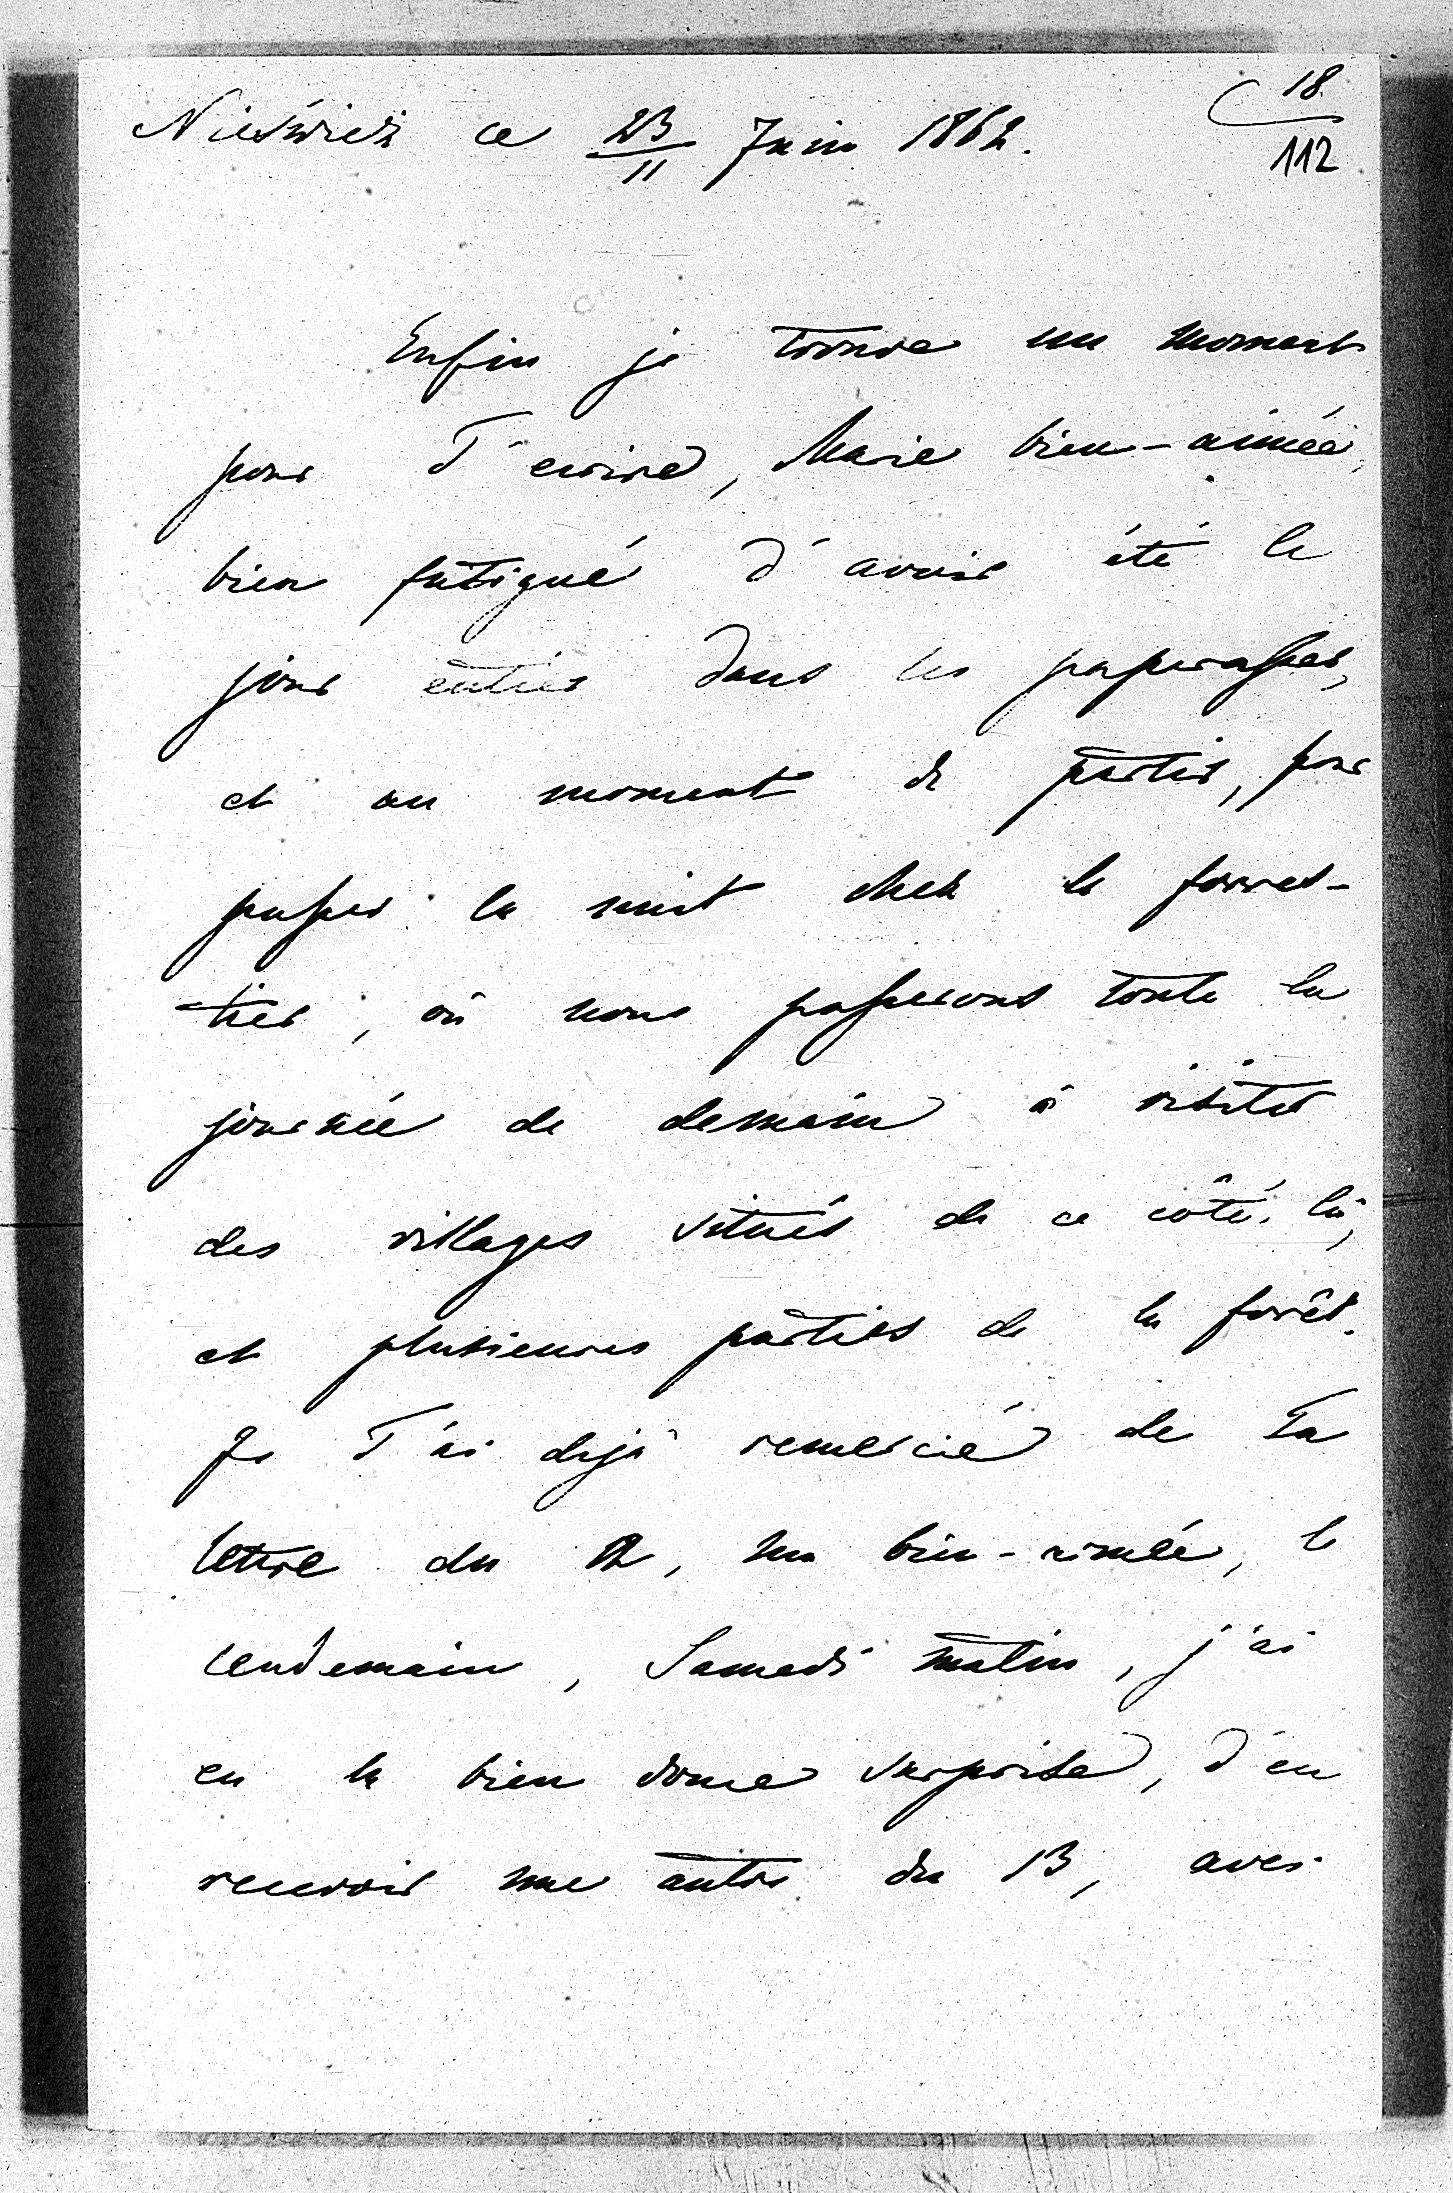 Nieśwież ce 23/11 Juin 1862.
18/112
Enfin je trouve un moment
pour T'écrire, Marie bien-aimée,
bien fatigué d'avoir été le
jour entier dans les paperasses,
et au moment de partir, pour
passer la nuit chez le forres-
tier, où nous passerons toute la
journée de demain à visiter
des villages situés de ce côté là,
et plusieures parties de la forêt.
Je T'ai dejà remercié de Ta
lettre du 12, ma bien-aimée, le
lendemain, Samedi matin, j'ai
eu la bien douce surprise, d'en
recevoir une autre du 13, avec